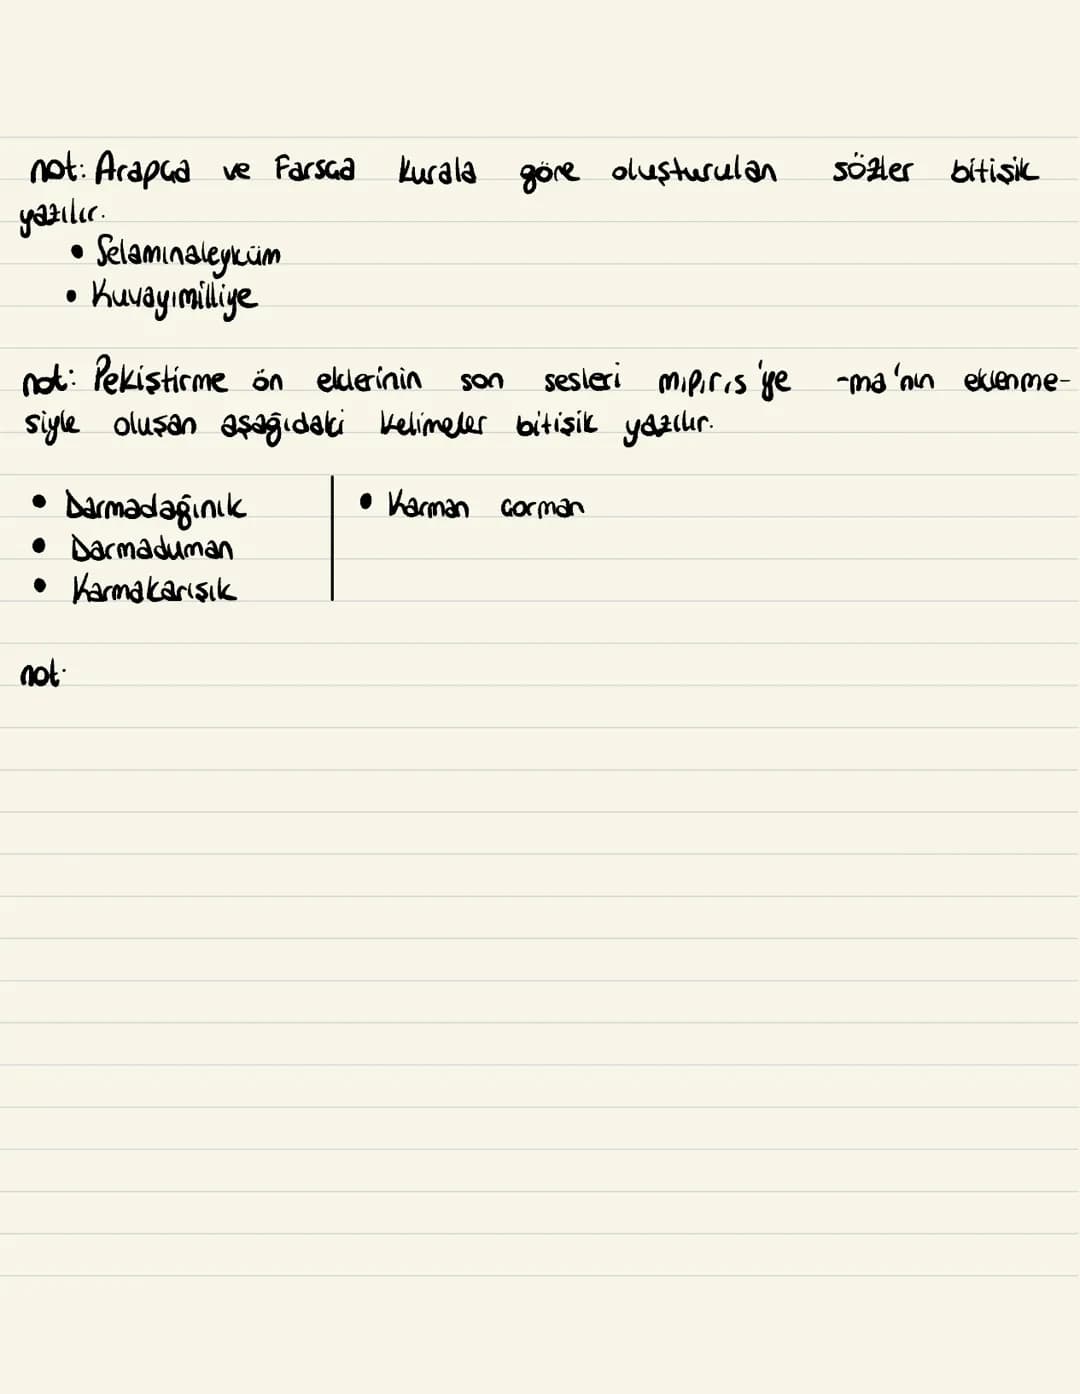 not: Arapça ve Farsça kurala göre oluşturulan sözler bitişik
yazılır.
• Selamınaleyküm
• Kuvayımilliye
not: Pekiştirme ön eklerinin son sesleri m,p,r,s 'ye -ma'nın eklenme-
siyle oluşan aşağıdaki kelimeler bitişik yazılır.
• Darmadağınık
• Darmaduman
• Karmakarışık
• Karman çorman
not.